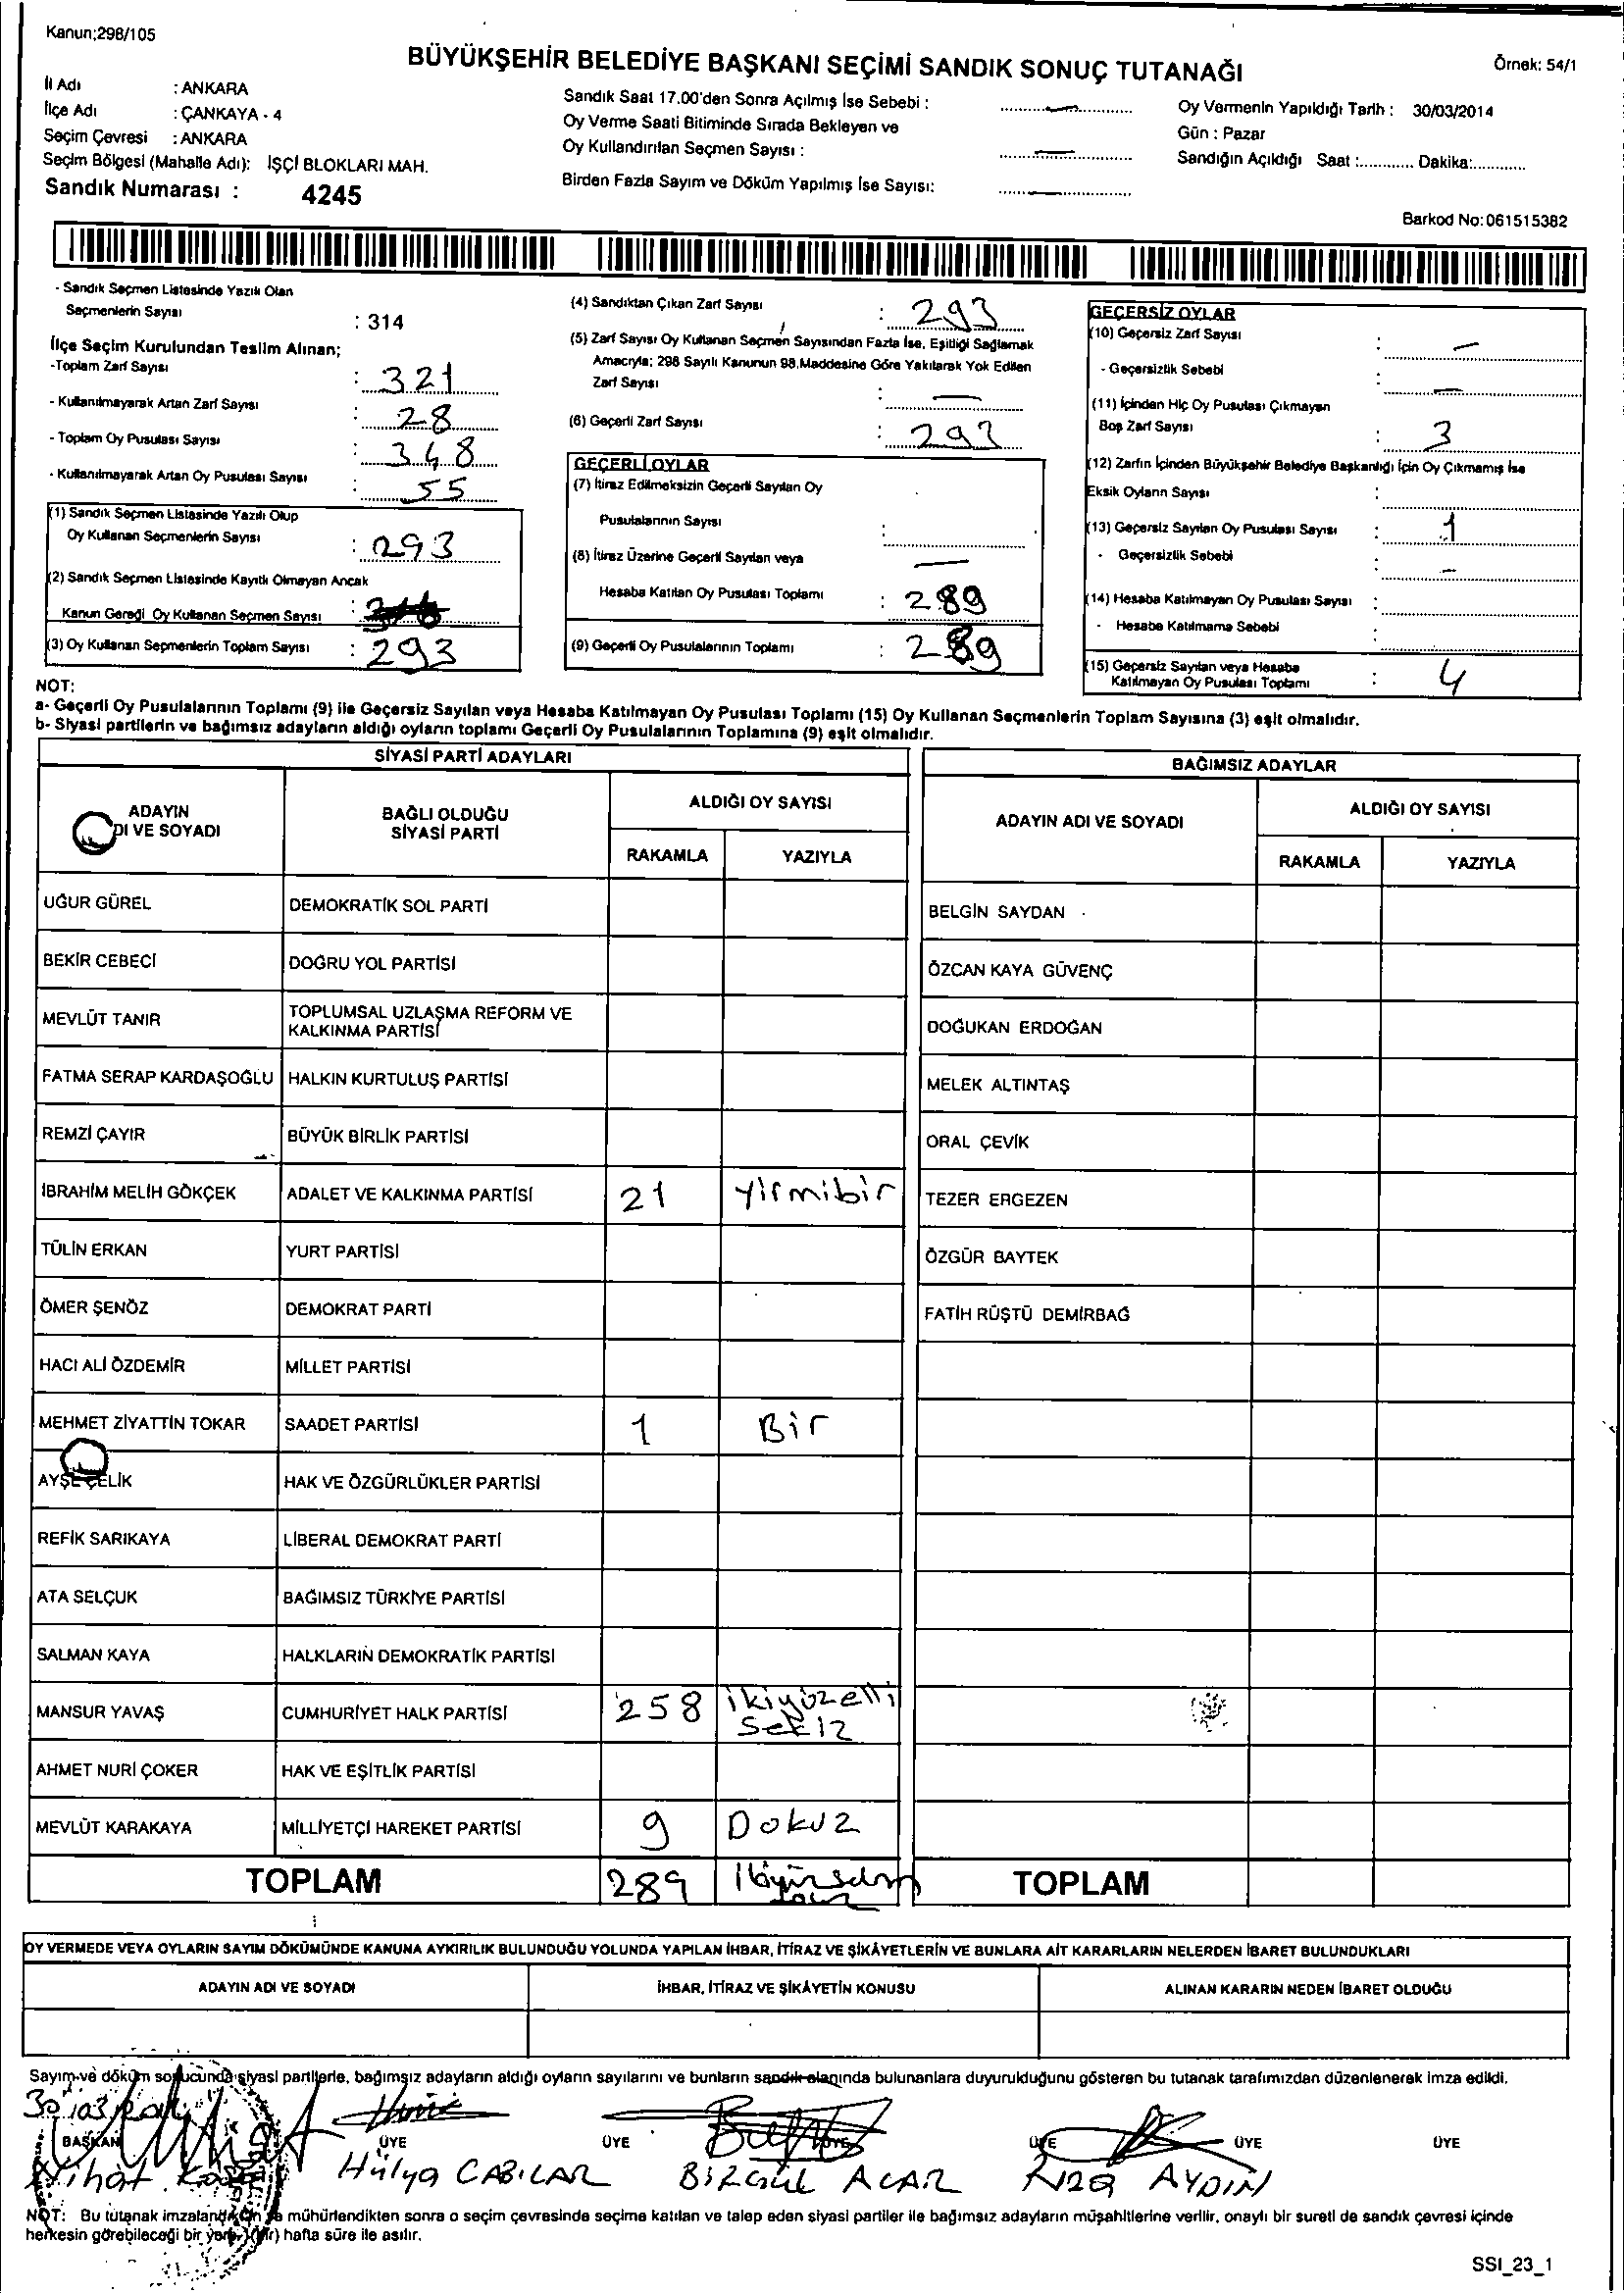 Kanun;298/105
BÜYÜKŞEHİR BELEDİYE BAŞKANI SEÇİMİ SANDIK SONUÇ TUTANAĞI
Örnek: 54/1
İl Adı : ANKARA
İlçe Adı : ÇANKAYA - 4
Seçim Çevresi : ANKARA
Seçim Bölgesi (Mahalle Adı): İŞÇİ BLOKLARI MAH.
Sandık Numarası : 4245
Sandık Saat 17.00'den Sonra Açılmış İse Sebebi :
Oy Verme Saati Bitiminde Sırada Bekleyen ve
Oy Kullandırılan Seçmen Sayısı :
Birden Fazla Sayım ve Döküm Yapılmış İse Sayısı:
Oy Vermenin Yapıldığı Tarih : 30/03/2014
Gün : Pazar
Sandığın Açıldığı Saat :............ Dakika:............
Barkod No:061515382
- Sandık Seçmen Listesinde Yazılı Olan
Seçmenlerin Sayısı : 314
İlçe Seçim Kurulundan Teslim Alınan;
-Toplam Zarf Sayısı : 321
- Kullanılmayarak Artan Zarf Sayısı : 28
- Toplam Oy Pusulası Sayısı : 348
- Kullanılmayarak Artan Oy Pusulası Sayısı : 55
(1) Sandık Seçmen Listesinde Yazılı Olup
Oy Kullanan Seçmenlerin Sayısı : 293
(2) Sandık Seçmen Listesinde Kayıtlı Olmayan Ancak
Kanun Gereği Oy Kullanan Seçmen Sayısı :
(3) Oy Kullanan Seçmenlerin Toplam Sayısı : 293
(4) Sandıktan Çıkan Zarf Sayısı : 293
(5) Zarf Sayısı Oy Kullanan Seçmen Sayısından Fazla İse, Eşitliği Sağlamak
Amacıyla; 298 Sayılı Kanunun 98.Maddesine Göre Yakılarak Yok Edilen
Zarf Sayısı : —
(6) Geçerli Zarf Sayısı : 293
GEÇERLİ OYLAR
(7) İtiraz Edilmeksizin Geçerli Sayılan Oy
Pusulalarının Sayısı :
(8) İtiraz Üzerine Geçerli Sayılan veya —
Hesaba Katılan Oy Pusulası Toplamı : 289
(9) Geçerli Oy Pusulalarının Toplamı : 289
GEÇERSİZ OYLAR
(10) Geçersiz Zarf Sayısı : —
- Geçersizlik Sebebi : —
(11) İçinden Hiç Oy Pusulası Çıkmayan
Boş Zarf Sayısı : 3
(12) Zarfın İçinden Büyükşehir Belediye Başkanlığı İçin Oy Çıkmamış İse
Eksik Oyların Sayısı :
(13) Geçersiz Sayılan Oy Pusulası Sayısı : 1
- Geçersizlik Sebebi : —
(14) Hesaba Katılmayan Oy Pusulası Sayısı :
- Hesaba Katılmama Sebebi :
(15) Geçersiz Sayılan veya Hesaba
Katılmayan Oy Pusulası Toplamı : 4
NOT:
a- Geçerli Oy Pusulalarının Toplamı (9) ile Geçersiz Sayılan veya Hesaba Katılmayan Oy Pusulası Toplamı (15) Oy Kullanan Seçmenlerin Toplam Sayısına (3) eşit olmalıdır.
b- Siyasi partilerin ve bağımsız adayların aldığı oyların toplamı Geçerli Oy Pusulalarının Toplamına (9) eşit olmalıdır.
SİYASİ PARTİ ADAYLARI
ADAYIN
DI VE SOYADI
BAĞLI OLDUĞU
SİYASİ PARTİ
ALDIĞI OY SAYISI
RAKAMLA YAZIYLA
UĞUR GÜREL DEMOKRATİK SOL PARTİ
BEKİR CEBECİ DOĞRU YOL PARTİSİ
MEVLÜT TANIR TOPLUMSAL UZLAŞMA REFORM VE
KALKINMA PARTİSİ
FATMA SERAP KARDAŞOĞLU HALKIN KURTULUŞ PARTİSİ
REMZİ ÇAYIR BÜYÜK BİRLİK PARTİSİ
İBRAHİM MELİH GÖKÇEK ADALET VE KALKINMA PARTİSİ 21 yirmibir
TÜLİN ERKAN YURT PARTİSİ
ÖMER ŞENÖZ DEMOKRAT PARTİ
HACI ALİ ÖZDEMİR MİLLET PARTİSİ
MEHMET ZİYATTİN TOKAR SAADET PARTİSİ 1 Bir
AYŞE ÇELİK HAK VE ÖZGÜRLÜKLER PARTİSİ
REFİK SARIKAYA LİBERAL DEMOKRAT PARTİ
ATA SELÇUK BAĞIMSIZ TÜRKİYE PARTİSİ
SALMAN KAYA HALKLARIN DEMOKRATİK PARTİSİ
MANSUR YAVAŞ CUMHURİYET HALK PARTİSİ 258 ikiyüzelli
sekiz
AHMET NURİ ÇOKER HAK VE EŞİTLİK PARTİSİ
MEVLÜT KARAKAYA MİLLİYETÇİ HAREKET PARTİSİ 9 Dokuz
TOPLAM 289
BAĞIMSIZ ADAYLAR
ADAYIN ADI VE SOYADI
ALDIĞI OY SAYISI
RAKAMLA YAZIYLA
BELGİN SAYDAN
ÖZCAN KAYA GÜVENÇ
DOĞUKAN ERDOĞAN
MELEK ALTINTAŞ
ORAL ÇEVİK
TEZER ERGEZEN
ÖZGÜR BAYTEK
FATİH RÜŞTÜ DEMİRBAĞ
TOPLAM
OY VERMEDE VEYA OYLARIN SAYIM DÖKÜMÜNDE KANUNA AYKIRILIK BULUNDUĞU YOLUNDA YAPILAN İHBAR, İTİRAZ VE ŞİKÂYETLERİN VE BUNLARA AİT KARARLARIN NELERDEN İBARET BULUNDUKLARI
ADAYIN ADI VE SOYADI İHBAR, İTİRAZ VE ŞİKÂYETİN KONUSU ALINAN KARARIN NEDEN İBARET OLDUĞU
Sayım ve döküm sonucunda siyasi partilerle, bağımsız adayların aldığı oyların sayılarını ve bunların sandık alanında bulunanlara duyurulduğunu gösteren bu tutanak tarafımızdan düzenlenerek imza edildi.
BAŞKAN ÜYE ÜYE ÜYE ÜYE ÜYE ÜYE
Nihat Hülya CABILAR BİRGÜL ACAR Rıza AYDIN
NOT: Bu tutanak imzalandıktan ve mühürlendikten sonra o seçim çevresinde seçime katılan ve talep eden siyasi partiler ile bağımsız adayların müşahitlerine verilir, onaylı bir sureti de sandık çevresi içinde
herkesin görebileceği bir yere (bir) hafta süre ile asılır.
SSI_23_1